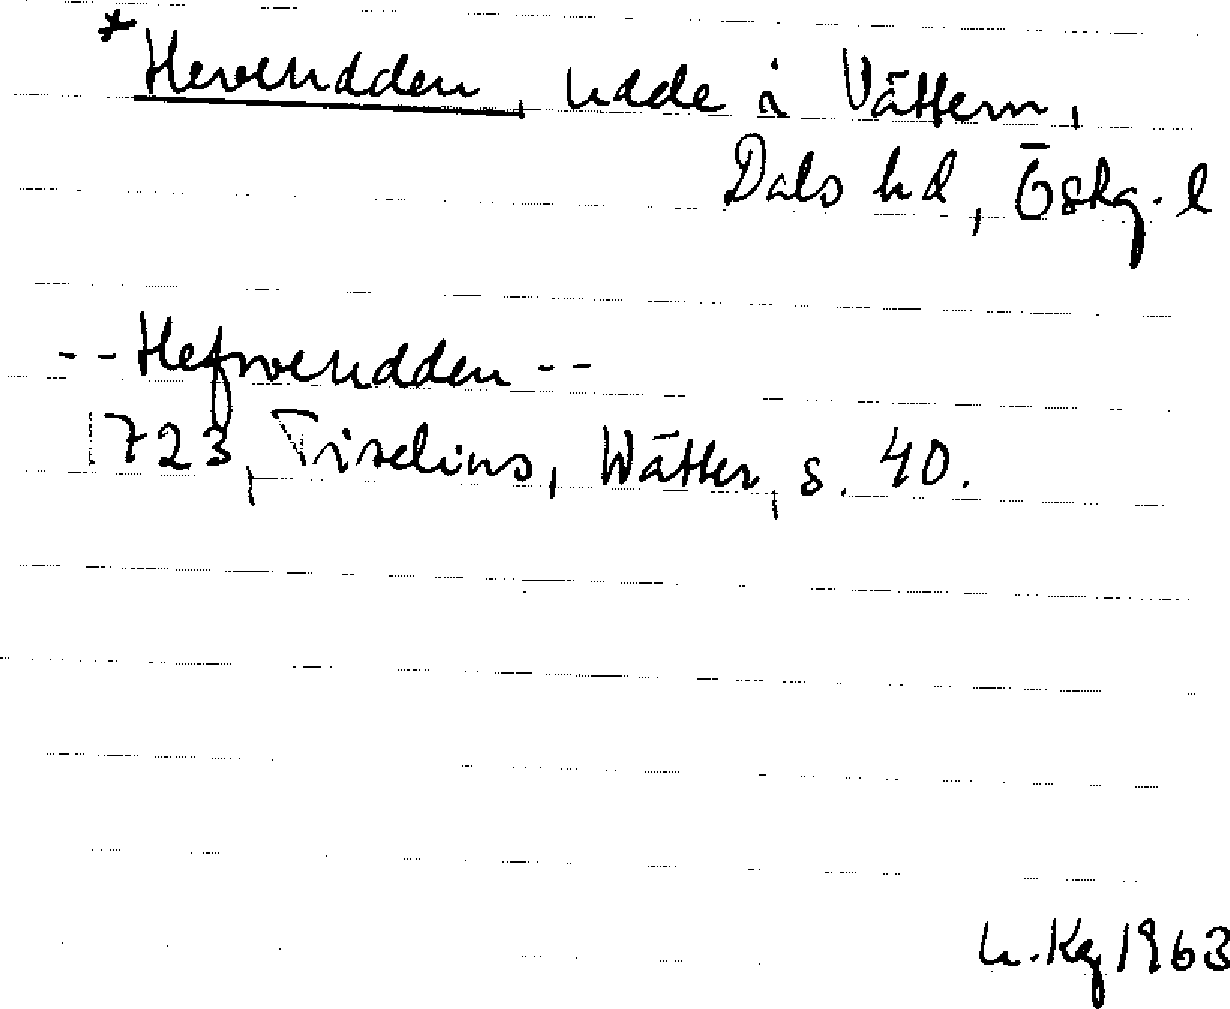 *Heveudden, udde i Vättern,
Dals hd, Östg. l
-- Hefweudden --
1723, Tiselius, Wätter, s. 40.
1963